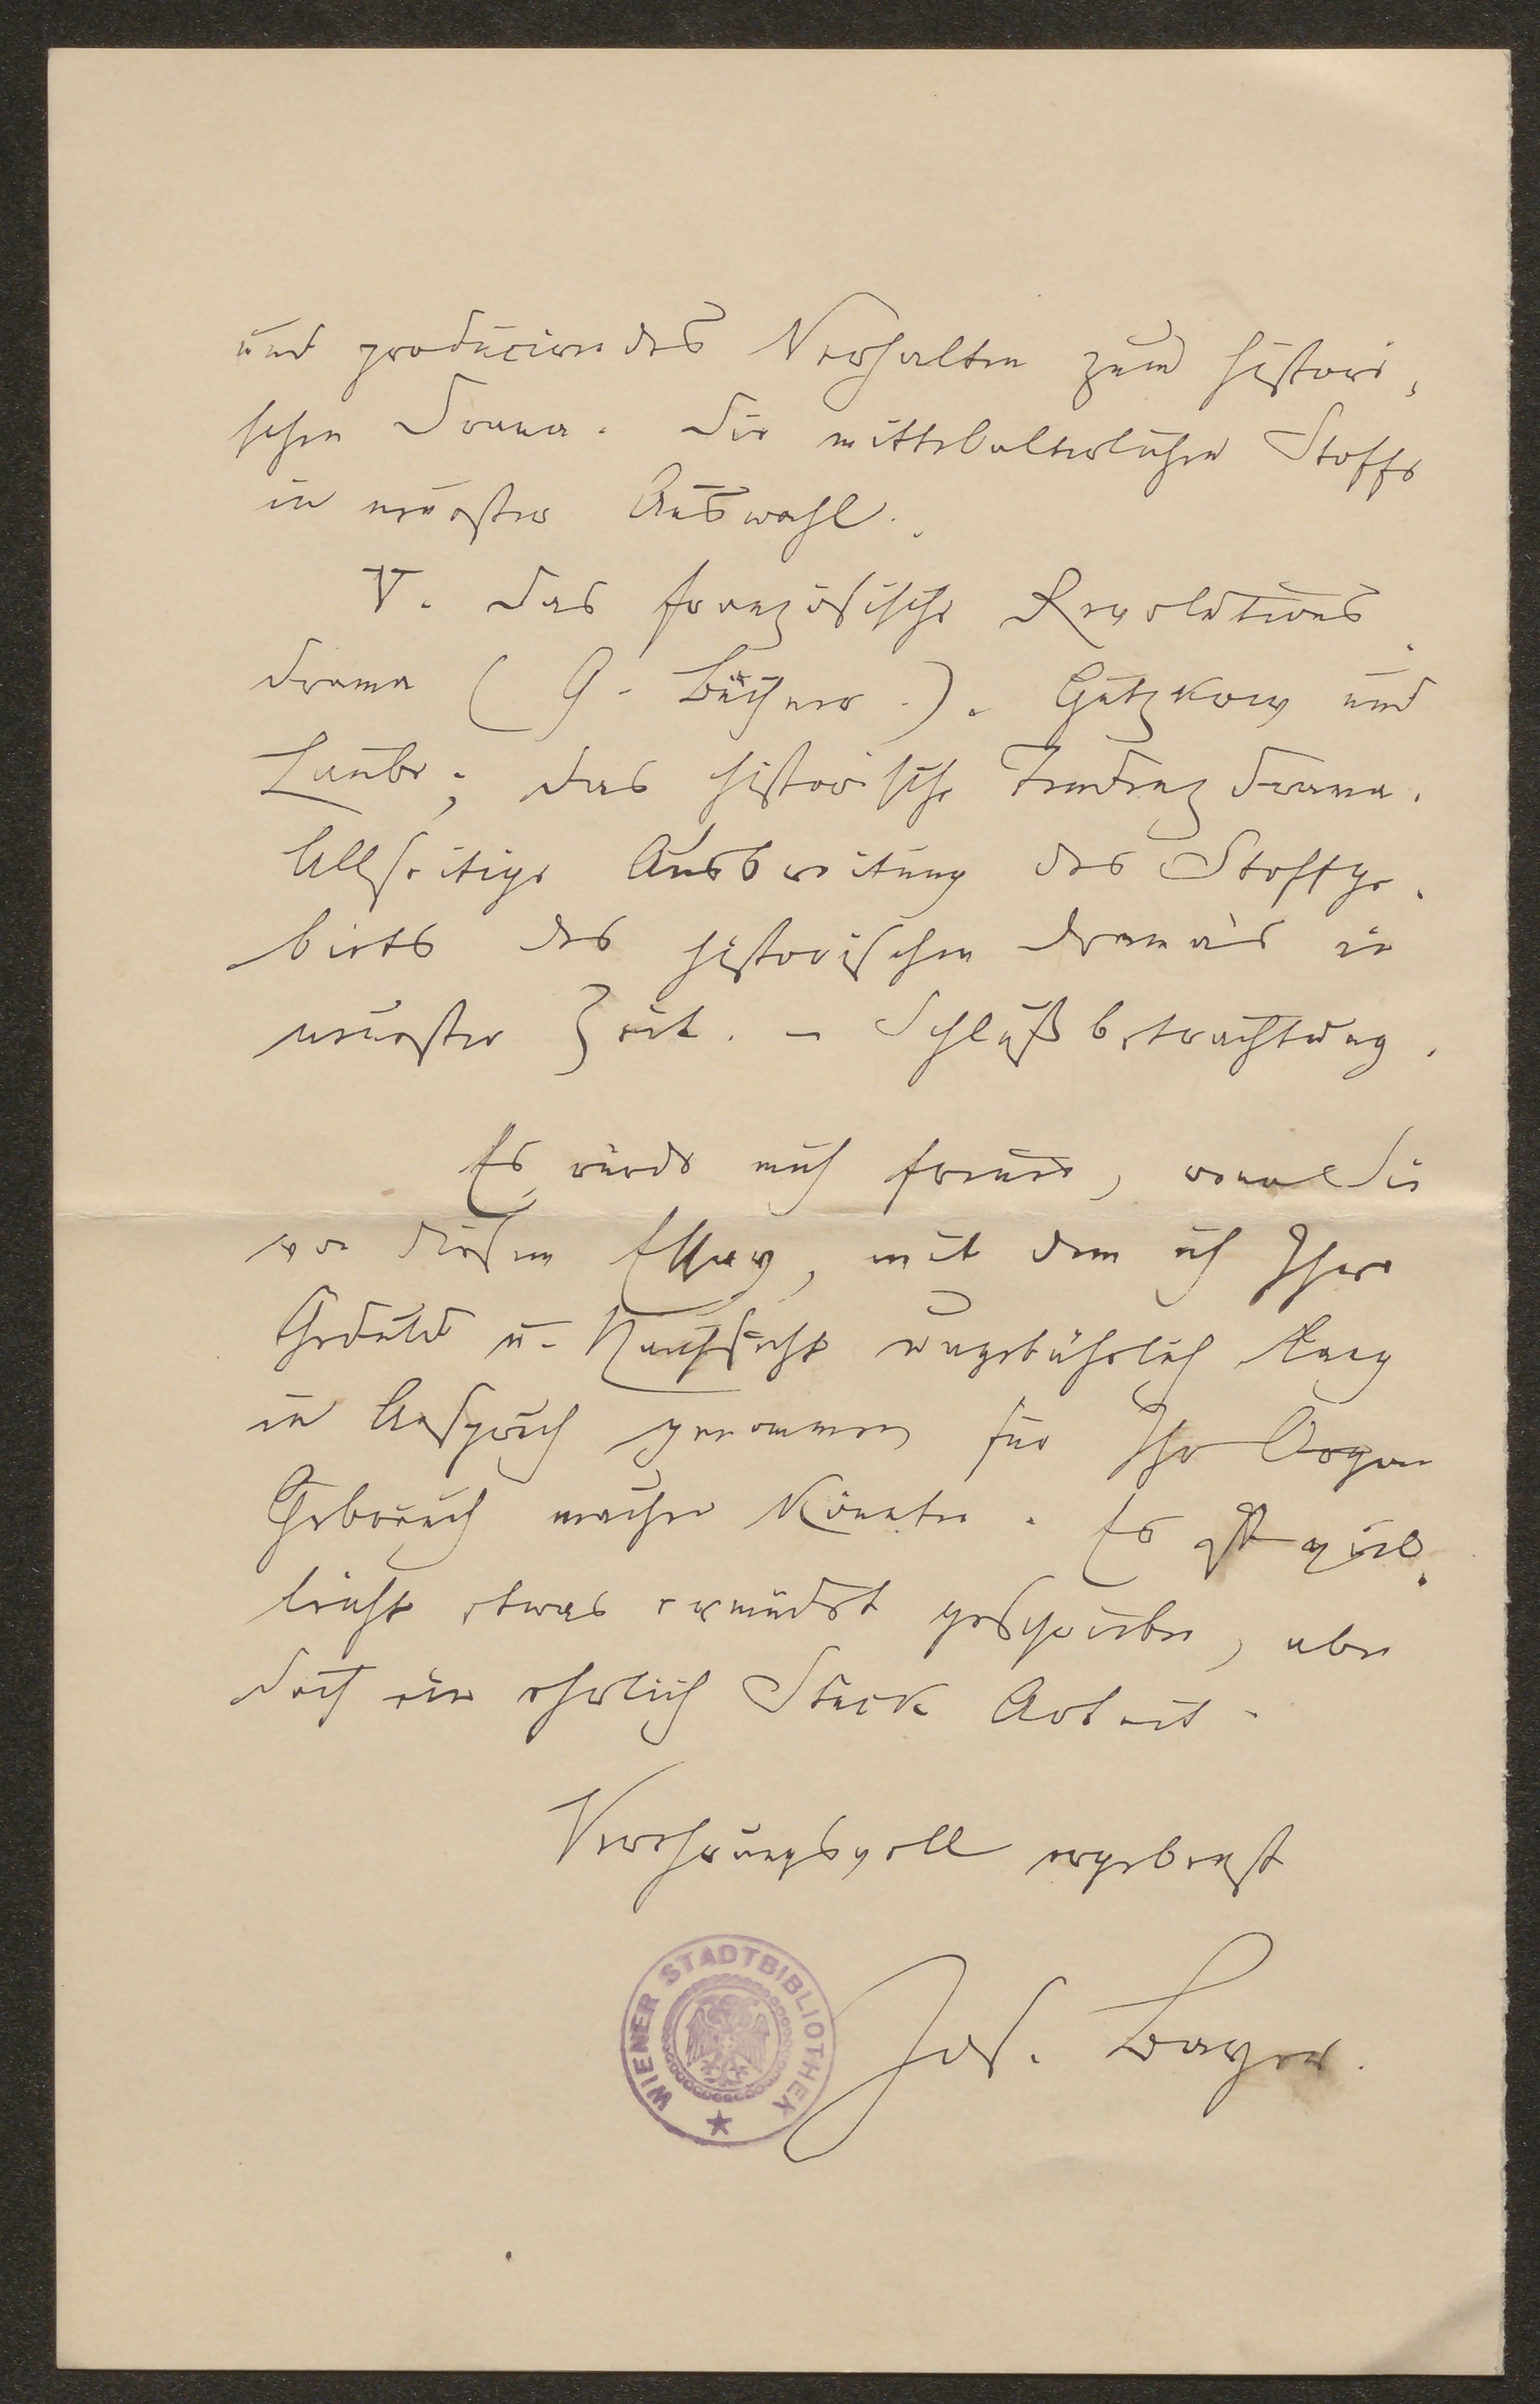 und producirendes Verhalten zum histori-
schen Drama. Die mittelalterlichen Stoffe
in neuester Auswahl.
V. Das französische Revolutions-
drama (G. Büchner.). Gutzkow und
Laube; das historische Tendenzdrama.
Allseitige Ausbreitung des Stoffge-
biets des historischen Drama's in
neuester Zeit. – Schlußbetrachtung.
Es würde mich freuen, wenn Sie
von diesem Essay, mit dem ich Ihre
Geduld u. Nachsicht ungebührlich lang
in Anspruch genommen für Ihr Organ
Gebrauch machen könnten. Es ist viel-
leicht etwas ermüdet geschrieben, aber
doch ein ehrlich Stück Arbeit.
Verehrungsvoll ergebenst
Jos. Bayer.
WIENER STADTBIBLIOTHEK